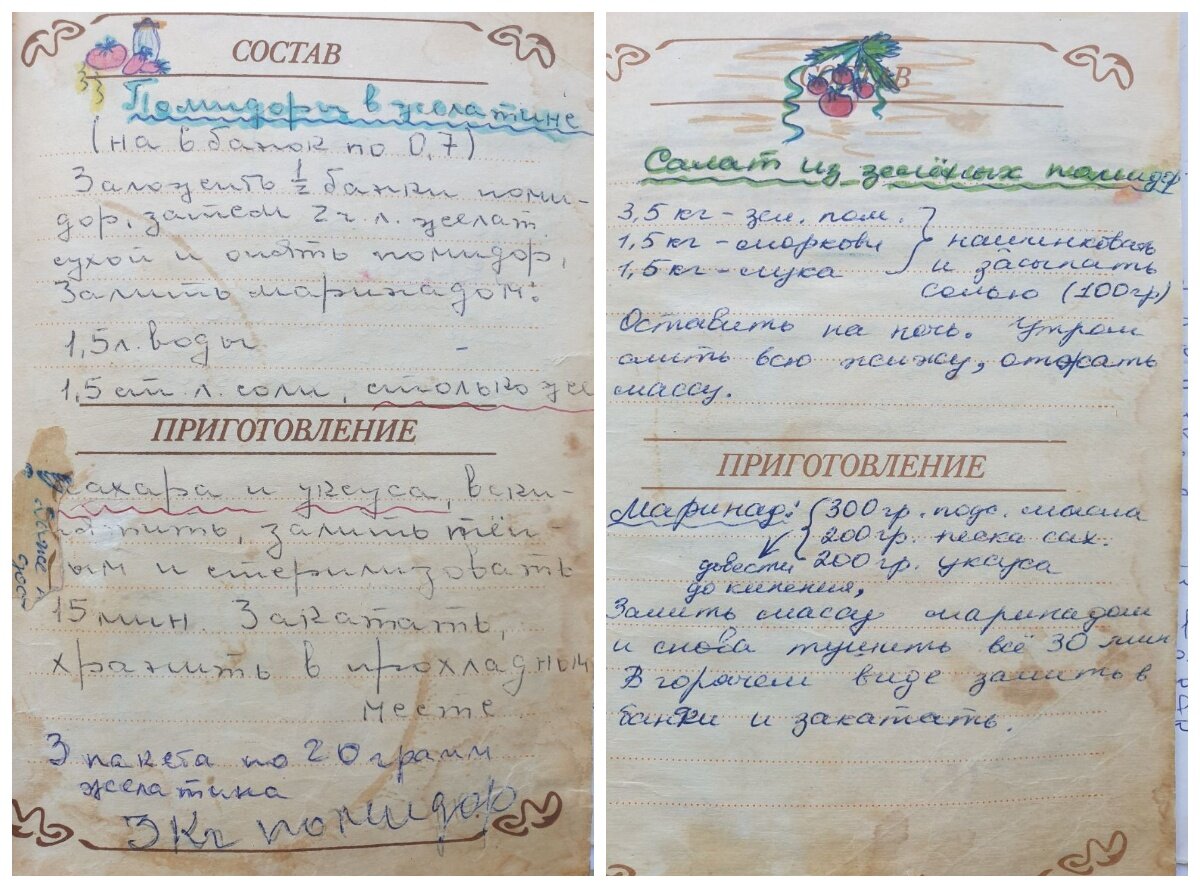 СОСТАВ
Помидоры в желатине
(на 6 банок по 0,7)
Заложить 1/2 банки поми-
дор, затем 2 ч. л. желат.
сухой и опять помидор,
Залить маринадом:
1,5 л. воды
1,5 ст. л. соли, столько же
ПРИГОТОВЛЕНИЕ
сахара и уксуса, вски-
пятить, залить тёп-
лым и стерилизовать
15 мин. Закатать,
хранить в прохладным
месте
3 пакета по 20 грамм
желатина
3 кг помидор
СОСТАВ
Салат из зелёных помидор
3,5 кг - зел. пом.
1,5 кг - моркови
1,5 кг - лука
нашинковать
и засыпать
солью (100гр)
Оставить на ночь. Утром
слить всю жижу, отжать
массу.
ПРИГОТОВЛЕНИЕ
Маринад: 300 гр. подс. масла
200 гр. песка сах.
200 гр. уксуса
довести
до кипения,
Залить массу маринадом
и снова тушить всё 30 мин
В горячем виде залить в
банки и закатать.